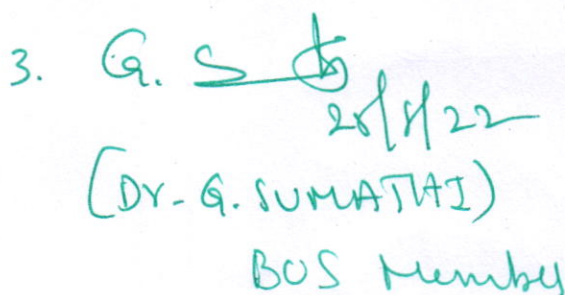 3. G. S
28/8/22
(Dr. G. SUMATHI)
BOS Member